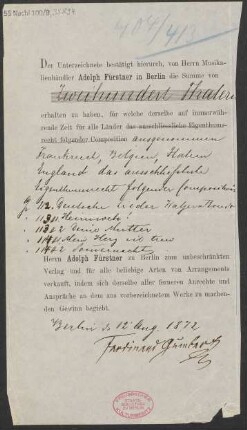 55 Nachl 100/B,
Der Unterzeichnete bestätigt hierdurch, von Herrn Musika-
lienhändler Adolph Fürstner in Berlin die Summe von
Zweihundert Thalern
erhalten zu haben, für welche derselbe auf immerwäh-
rende Zeit für alle Länder das ausschliessliche Eigenthums-
recht folgender Composition ausgenommen
Frankreich, Belgien, Italien
England das ausschließliche
Eigenthumsrecht folgender Composition
Deutsche Lieder
Heimwehs!
Deine Mutter
Herz
Herrn Adolph Fürstner zu Berlin zum unbeschränkten
Verlag und für alle beliebige Arten von Arrangements
verkauft, indem sich derselbe aller ferneren Anrechte und
Ansprüche an dem aus vorbezeichnetem Werke zu machen-
den Gewinn begiebt.
Berlin d. 12 Aug. 1872
Ferdinand Gumbert